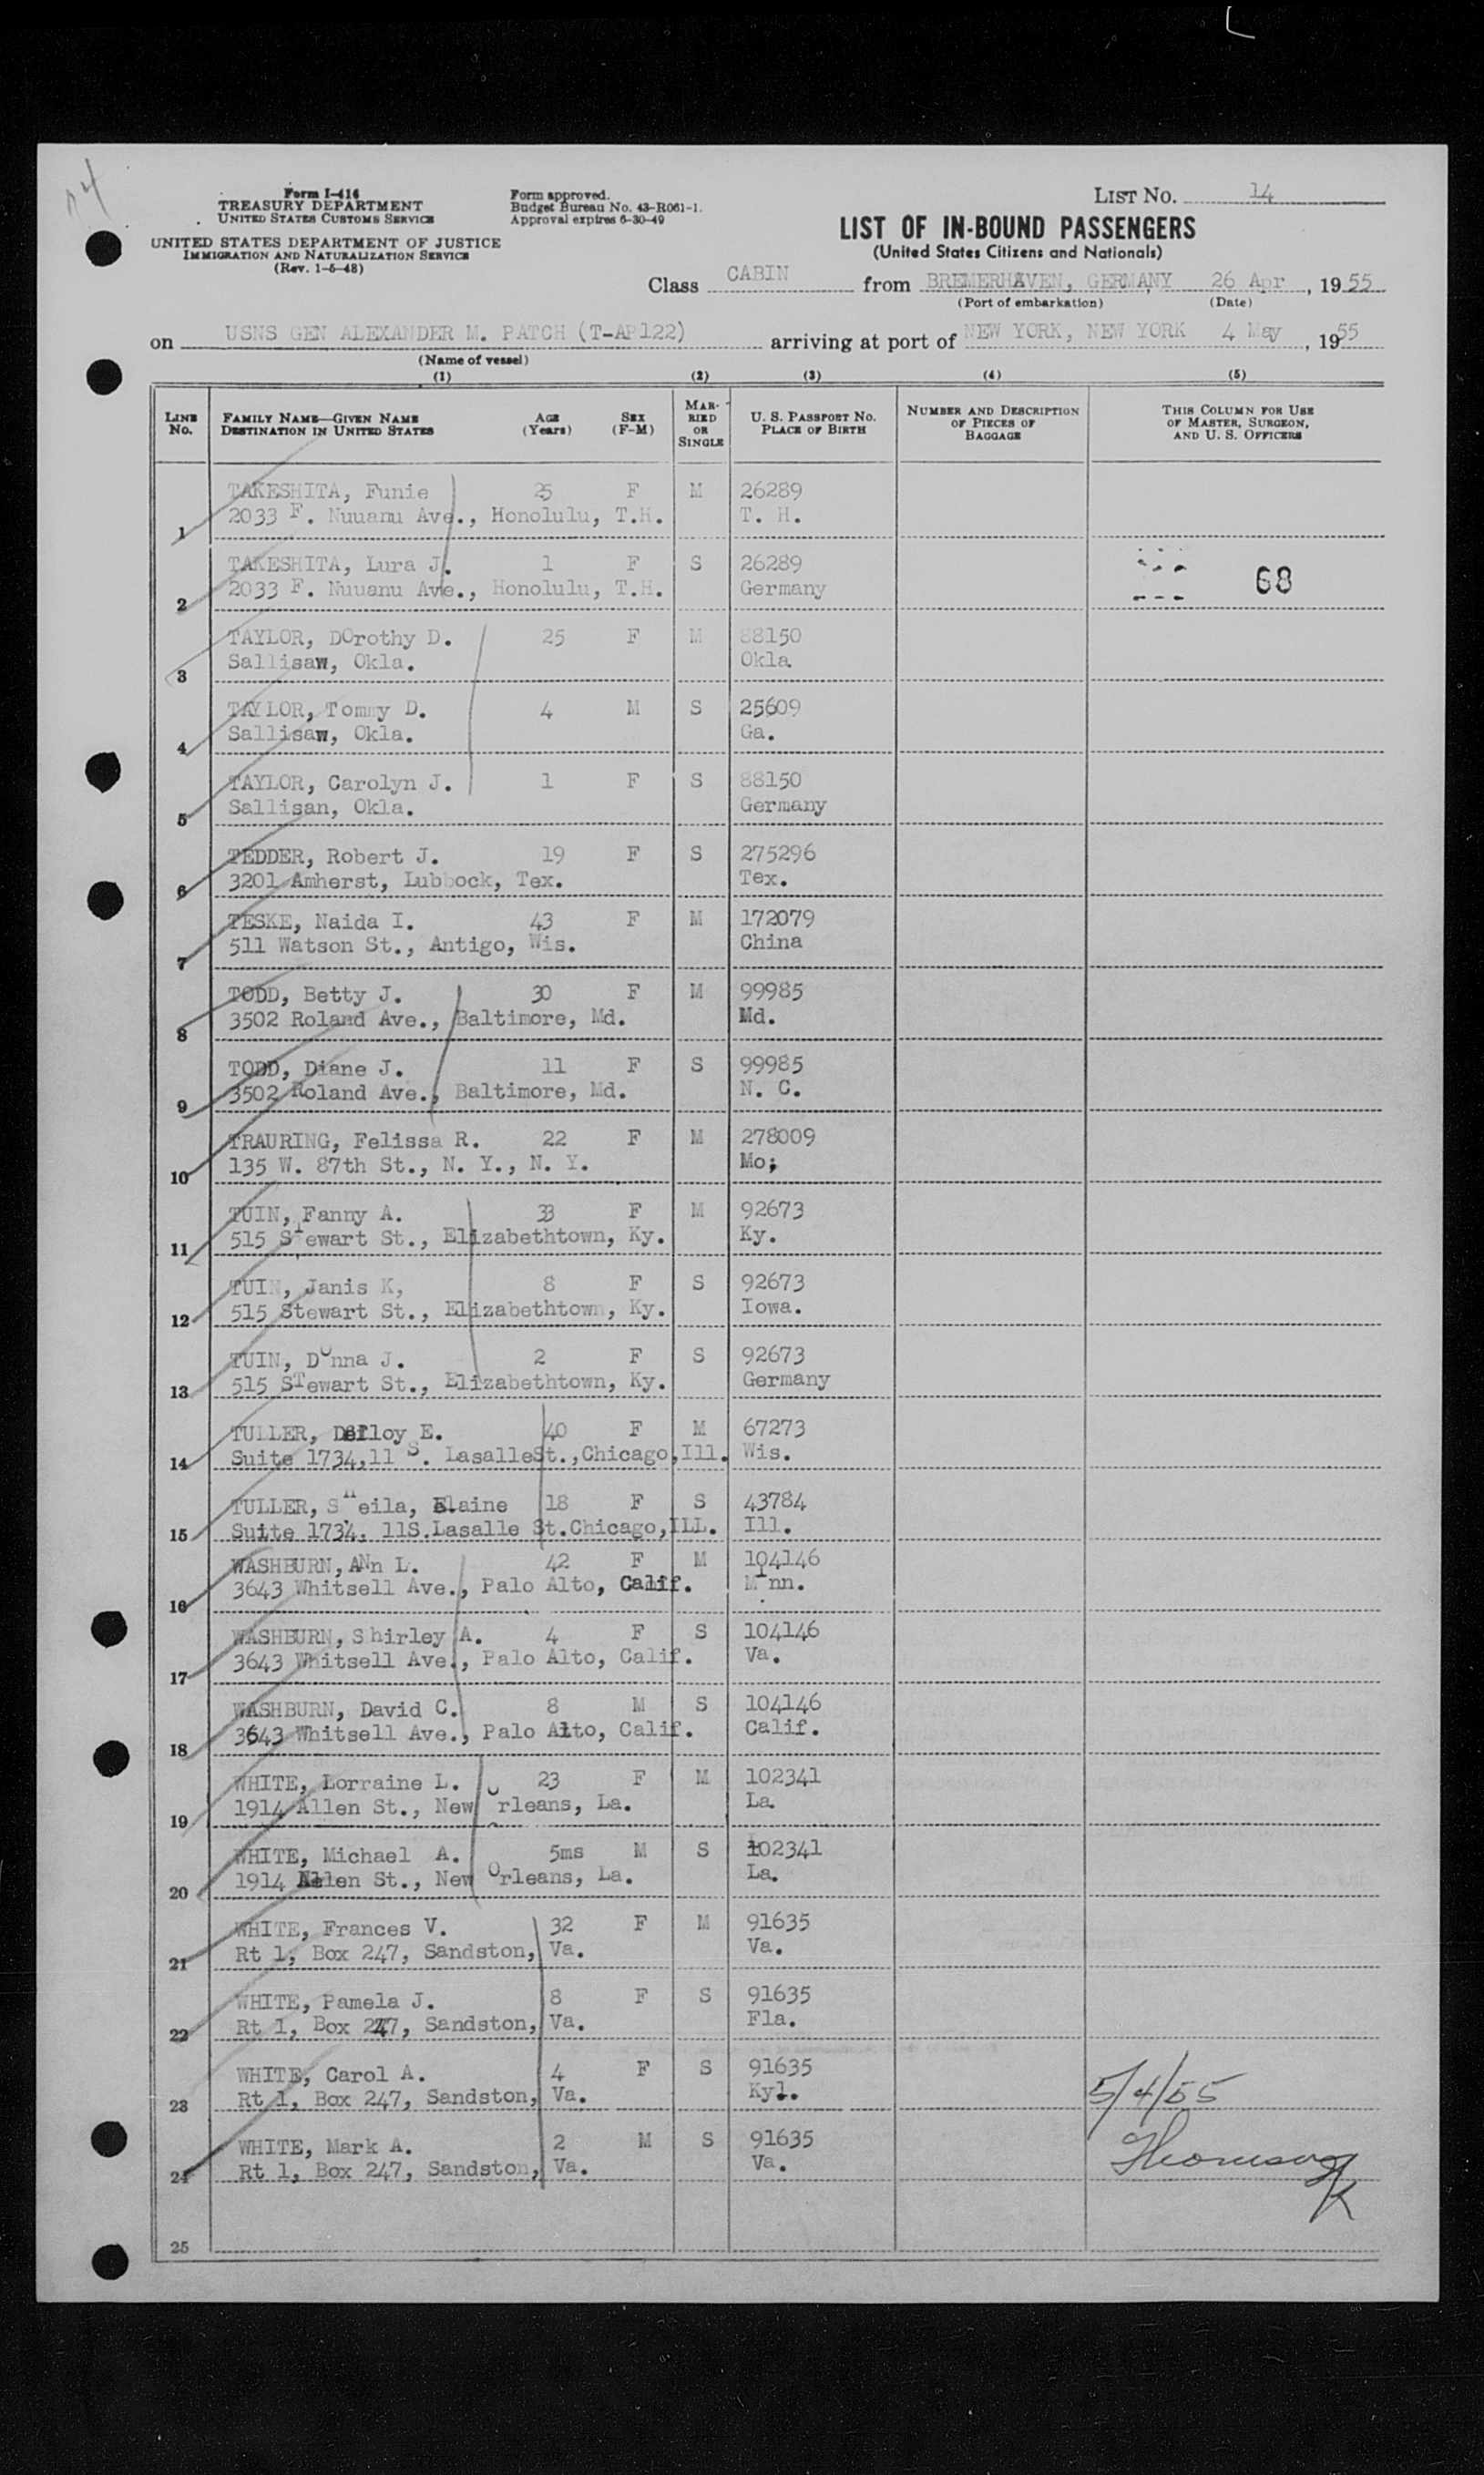 Form I-416
TREASURY DEPARTMENT
UNITED STATES CUSTOMS SERVICE
UNITED STATES DEPARTMENT OF JUSTICE
IMMIGRATION AND NATURALIZATION SERVICE
(Rev. 1-6-48)
Form approved.
Budget Bureau No. 43-R061-1.
Approval expires 6-30-49
LIST NO. 14
LIST OF IN-BOUND PASSENGERS
(United States Citizens and Nationals)
Class CABIN from BREMERHAVEN, GERMANY 26 Apr, 1955
(Port of embarkation) (Date)
on USNS GEN ALEXANDER M. PATCH (T-AP122) arriving at port of NEW YORK, NEW YORK 4 May, 1955
(Name of vessel)
(1) (2) (3) (4) (5)
LINE NO. FAMILY NAME—GIVEN NAME DESTINATION IN UNITED STATES AGE (Years) SEX (F-M) MARRIED OR SINGLE U. S. PASSPORT NO. PLACE OF BIRTH NUMBER AND DESCRIPTION OF PIECES OF BAGGAGE THIS COLUMN FOR USE OF MASTER, SURGEON, AND U. S. OFFICERS
TAKESHITA, Funie 25 F M 26289
1 2033 F. Nuuanu Ave., Honolulu, T.H. T. H.
TAKESHITA, Lura J. 1 F S 26289
2 2033 F. Nuuanu Ave., Honolulu, T.H. Germany 68
TAYLOR, DOrothy D. 25 F M 88150
3 Sallisaw, Okla. Okla
TAYLOR, Tommy D. 4 M S 25609
4 Sallisaw, Okla. Ga.
TAYLOR, Carolyn J. 1 F S 88150
5 Sallisan, Okla. Germany
TEDDER, Robert J. 19 F S 275296
6 3201 Amherst, Lubbock, Tex. Tex.
TESKE, Naida I. 43 F M 172079
7 511 Watson St., Antigo, Wis. China
TODD, Betty J. 30 F M 99985
8 3502 Roland Ave., Baltimore, Md. Md.
TODD, Diane J. 11 F S 99985
9 3502 Roland Ave., Baltimore, Md. N. C.
TRAURING, Felissa R. 22 F M 278009
10 135 W. 87th St., N. Y., N. Y. Mo;
TUIN, Fanny A. 33 F M 92673
11 515 STewart St., Elizabethtown, Ky. Ky.
TUIN, Janis K, 8 F S 92673
12 515 Stewart St., Elizabethtown, Ky. Iowa.
TUIN, DOnna J. 2 F S 92673
13 515 STewart St., Elizabethtown, Ky. Germany
TULLER, E. 40 F M 67273
14 Suite 1734,11 S. LasalleSt.,Chicago,Ill. Wis.
TULLER, SHeila, Elaine 18 F S 43784
15 Suite 1734, 11S.Lasalle St.Chicago,ILL. Ill.
WASHBURN, ANn L. 42 F M 104146
16 3643 Whitsell Ave., Palo Alto, Calif. MInn.
WASHBURN, Shirley A. 4 F S 104146
17 3643 Whitsell Ave., Palo Alto, Calif. Va.
WASHBURN, David C. 8 M S 104146
18 3643 Whitsell Ave., Palo Alto, Calif. Calif.
WHITE, Lorraine L. 23 F M 102341
19 1914 Allen St., New Orleans, La. La.
WHITE, Michael A. 5ms M S 102341
20 1914 Allen St., New Orleans, La. La.
WHITE, Frances V. 32 F M 91635
21 Rt 1, Box 247, Sandston, Va. Va.
WHITE, Pamela J. 8 F S 91635
22 Rt 1, Box 247, Sandston, Va. Fla.
WHITE, Carol A. 4 F S 91635
23 Rt 1, Box 247, Sandston, Va. Ky. 5/4/55
WHITE, Mark A. 2 M S 91635
24 Rt 1, Box 247, Sandston, Va. Va.
25